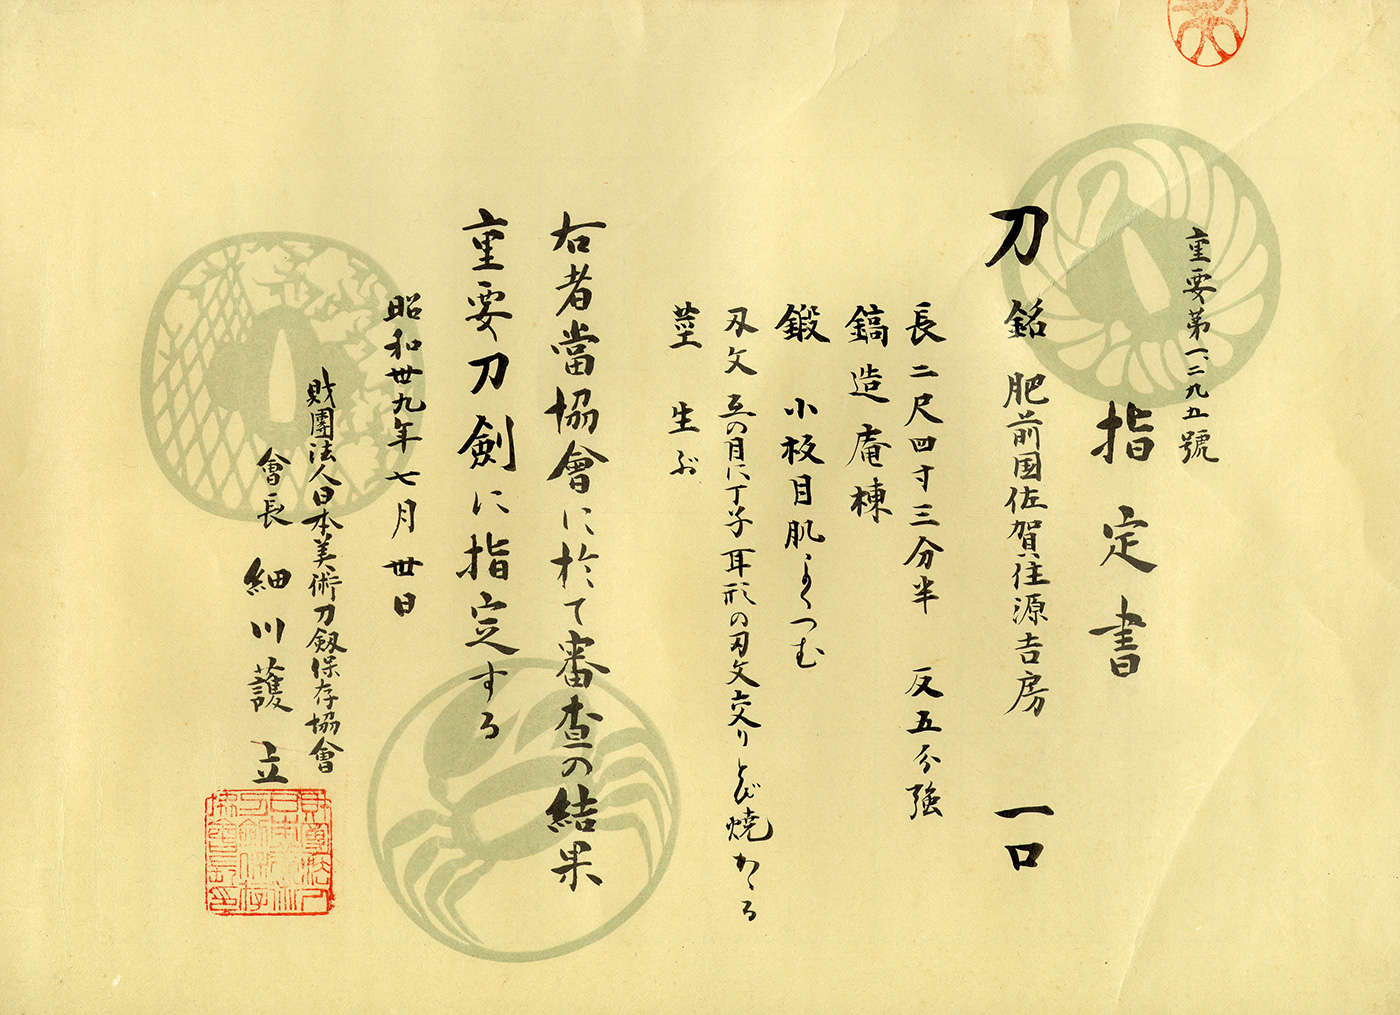 重要第一、二九五號
指定書
刀 銘 肥前国佐賀住源吉房 一口
長二尺四寸三分半 反五分強
鎬造庵棟
鍛 小板目肌よくつむ
刃文 互の目に丁子耳形の刃文交りとび焼かゝる
茎 生ぶ
右者當協會に於て審査の結果
重要刀劍に指定する
昭和卅九年七月卅日
財團法人日本美術刀劔保存協會
會長 細川護立